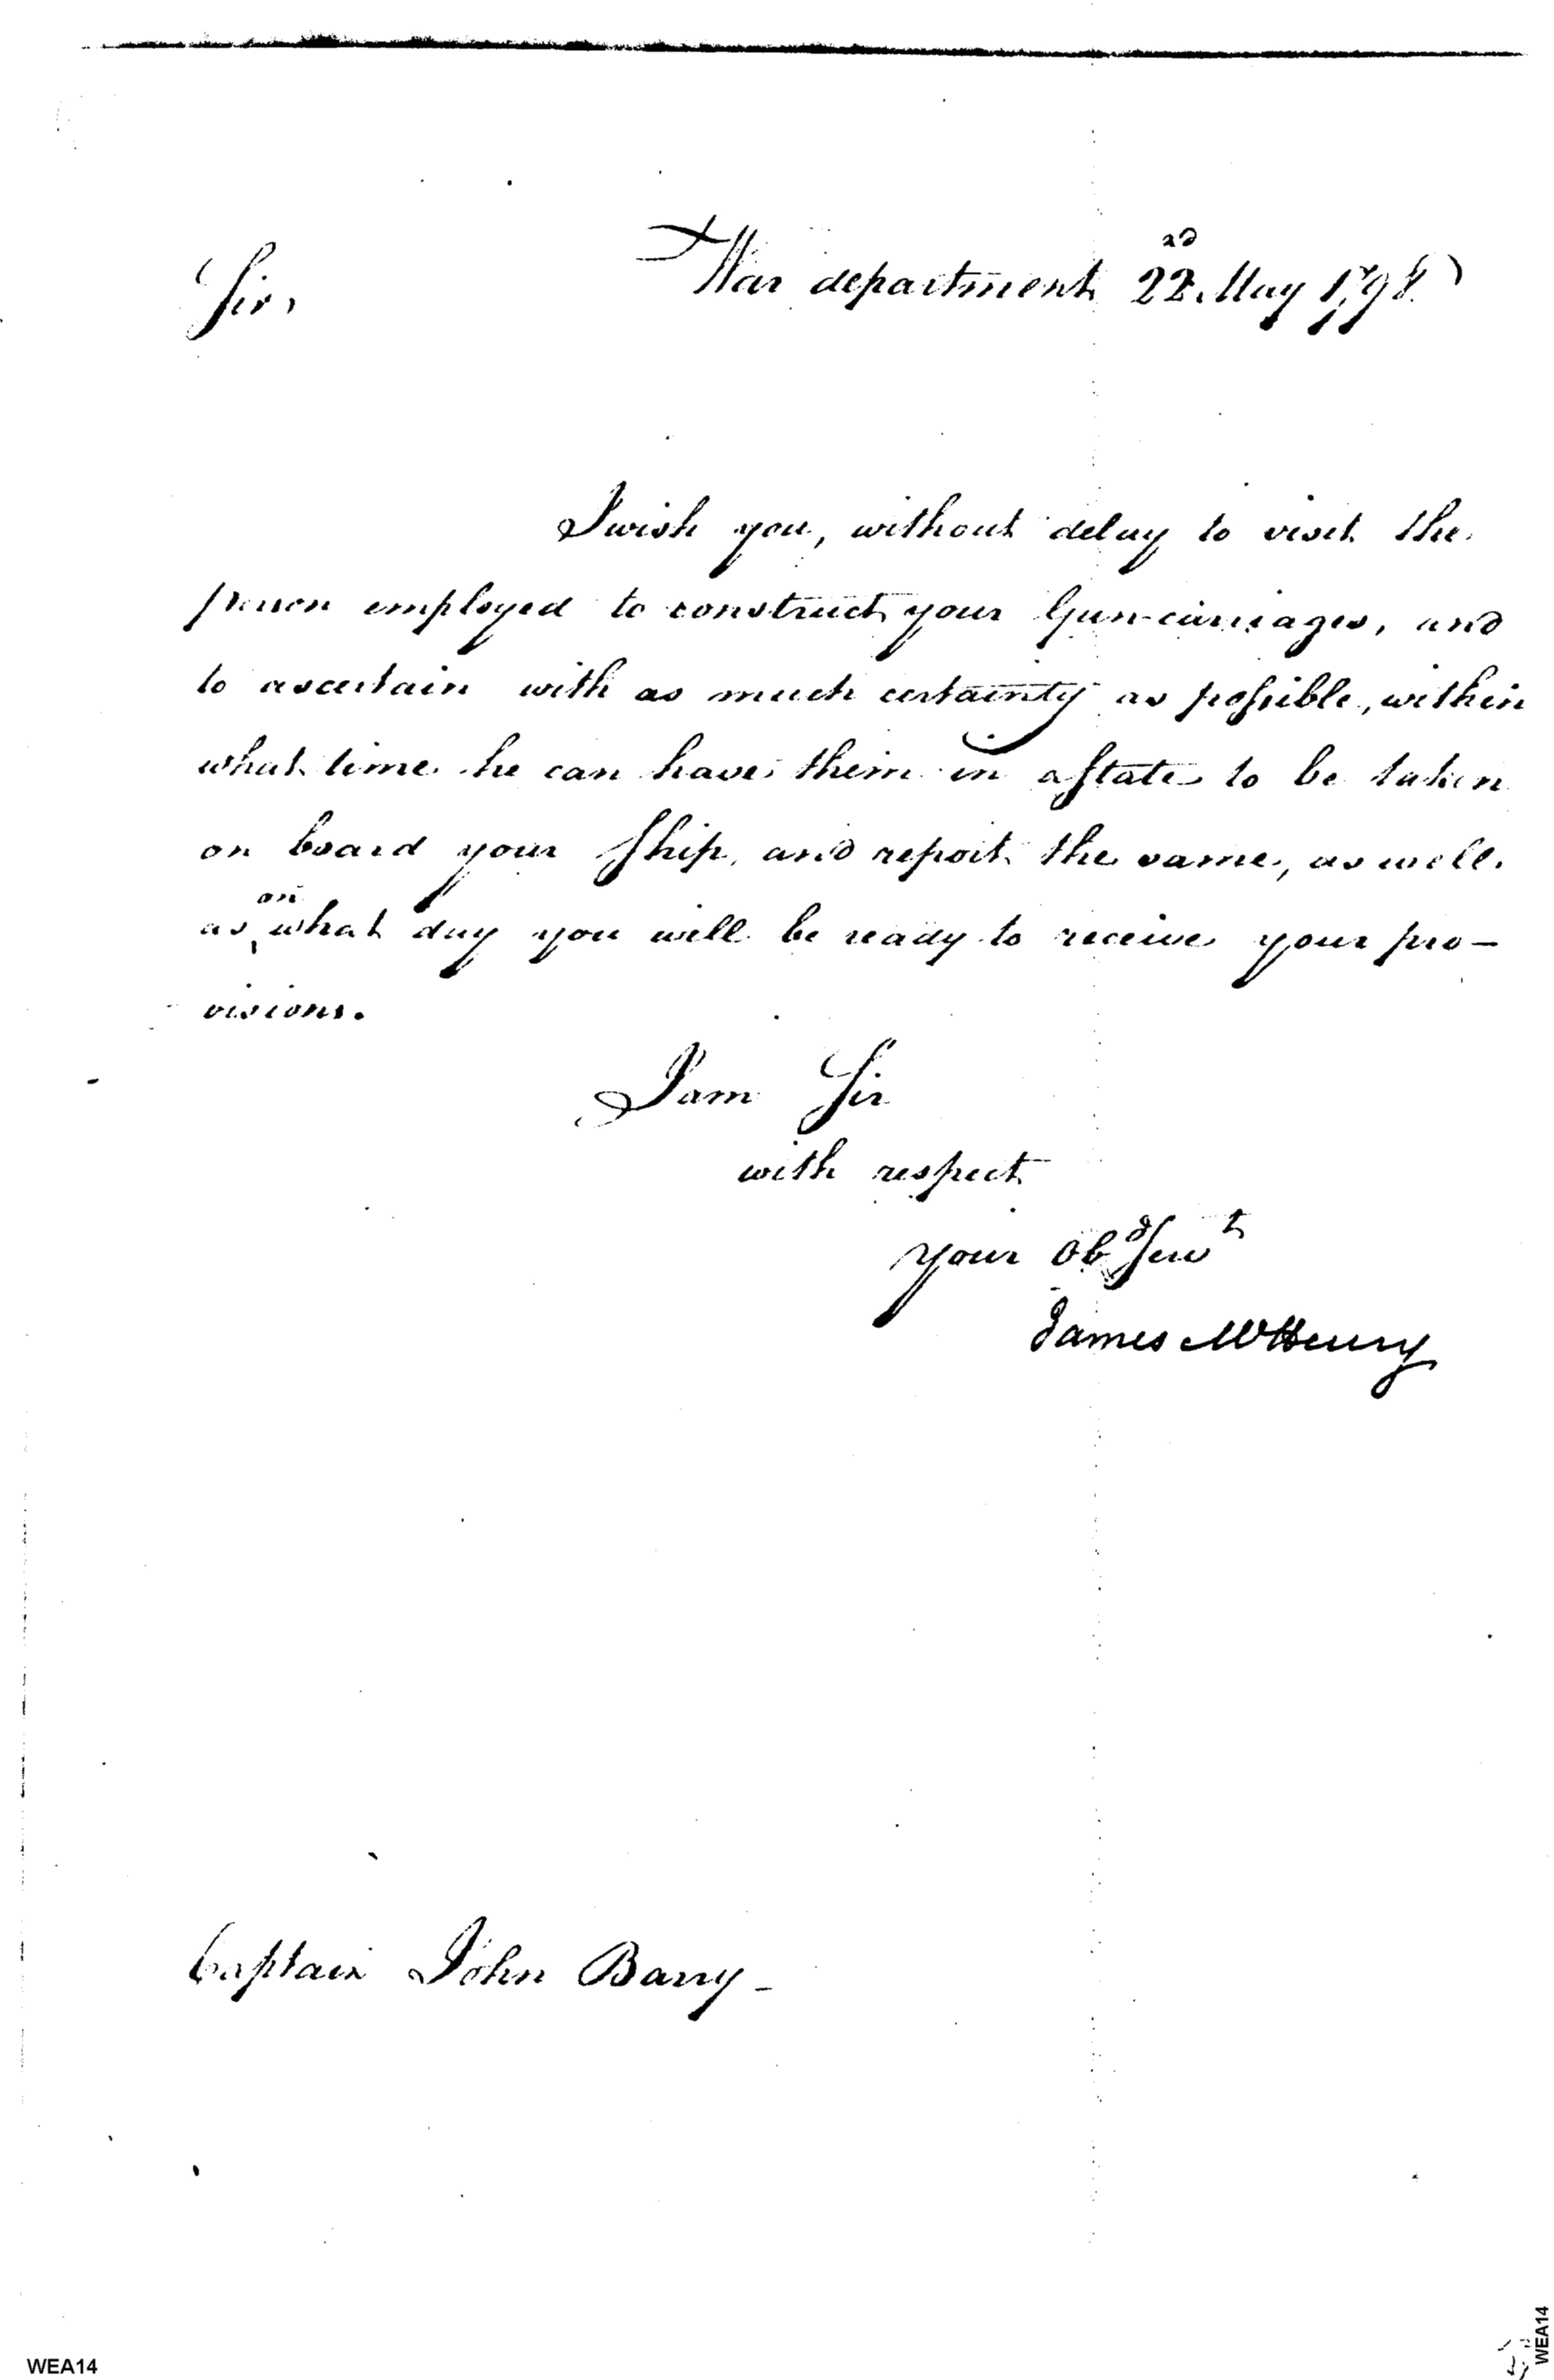 War department 22nd May 1798
Sir,
I wish you, without delay to visit the
person employed to construct your Gun-carriages, and
to ascertain with as much certainty as possible, within
what time he can have them in a State to be taken
on board your Ship, and report the same, as well
as on what day you will be ready to receive your pro-
visions.
I am Sir
with respect
your Obd Servt
James McHenry
Captain John Barry -
WEA14
WEA14